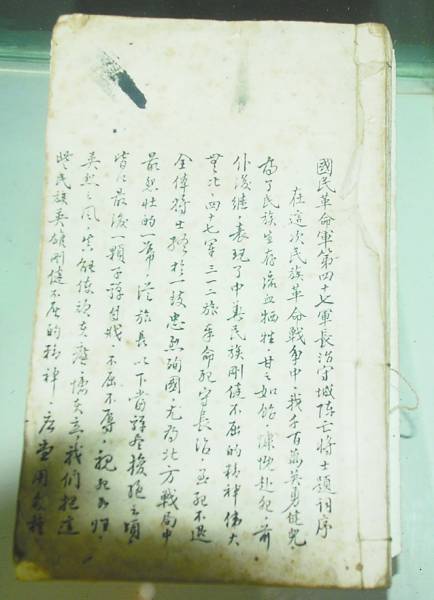 國民革命軍第四十七軍長治守城陣亡將士題詞序
在這次民族革命戰爭中，我千百萬英勇健兒，
為了民族生存流血犧牲，甘之如飴，慷慨赴死，前
仆後繼，表現了中華民族剛健不屈的精神偉大
無比，四十七軍三一二旅奉命死守長治，至死不退
全偉將士 於一 忠烈殉國，尤為北方戰局中
最悲壯的一幕，從旅長以下當彈盡援絕之頃，
皆以最後一顆子彈 賊，不屈不辱，視死如歸，
英烈之風，我們把這
些民族英雄剛健不屈的精神，應當用各種